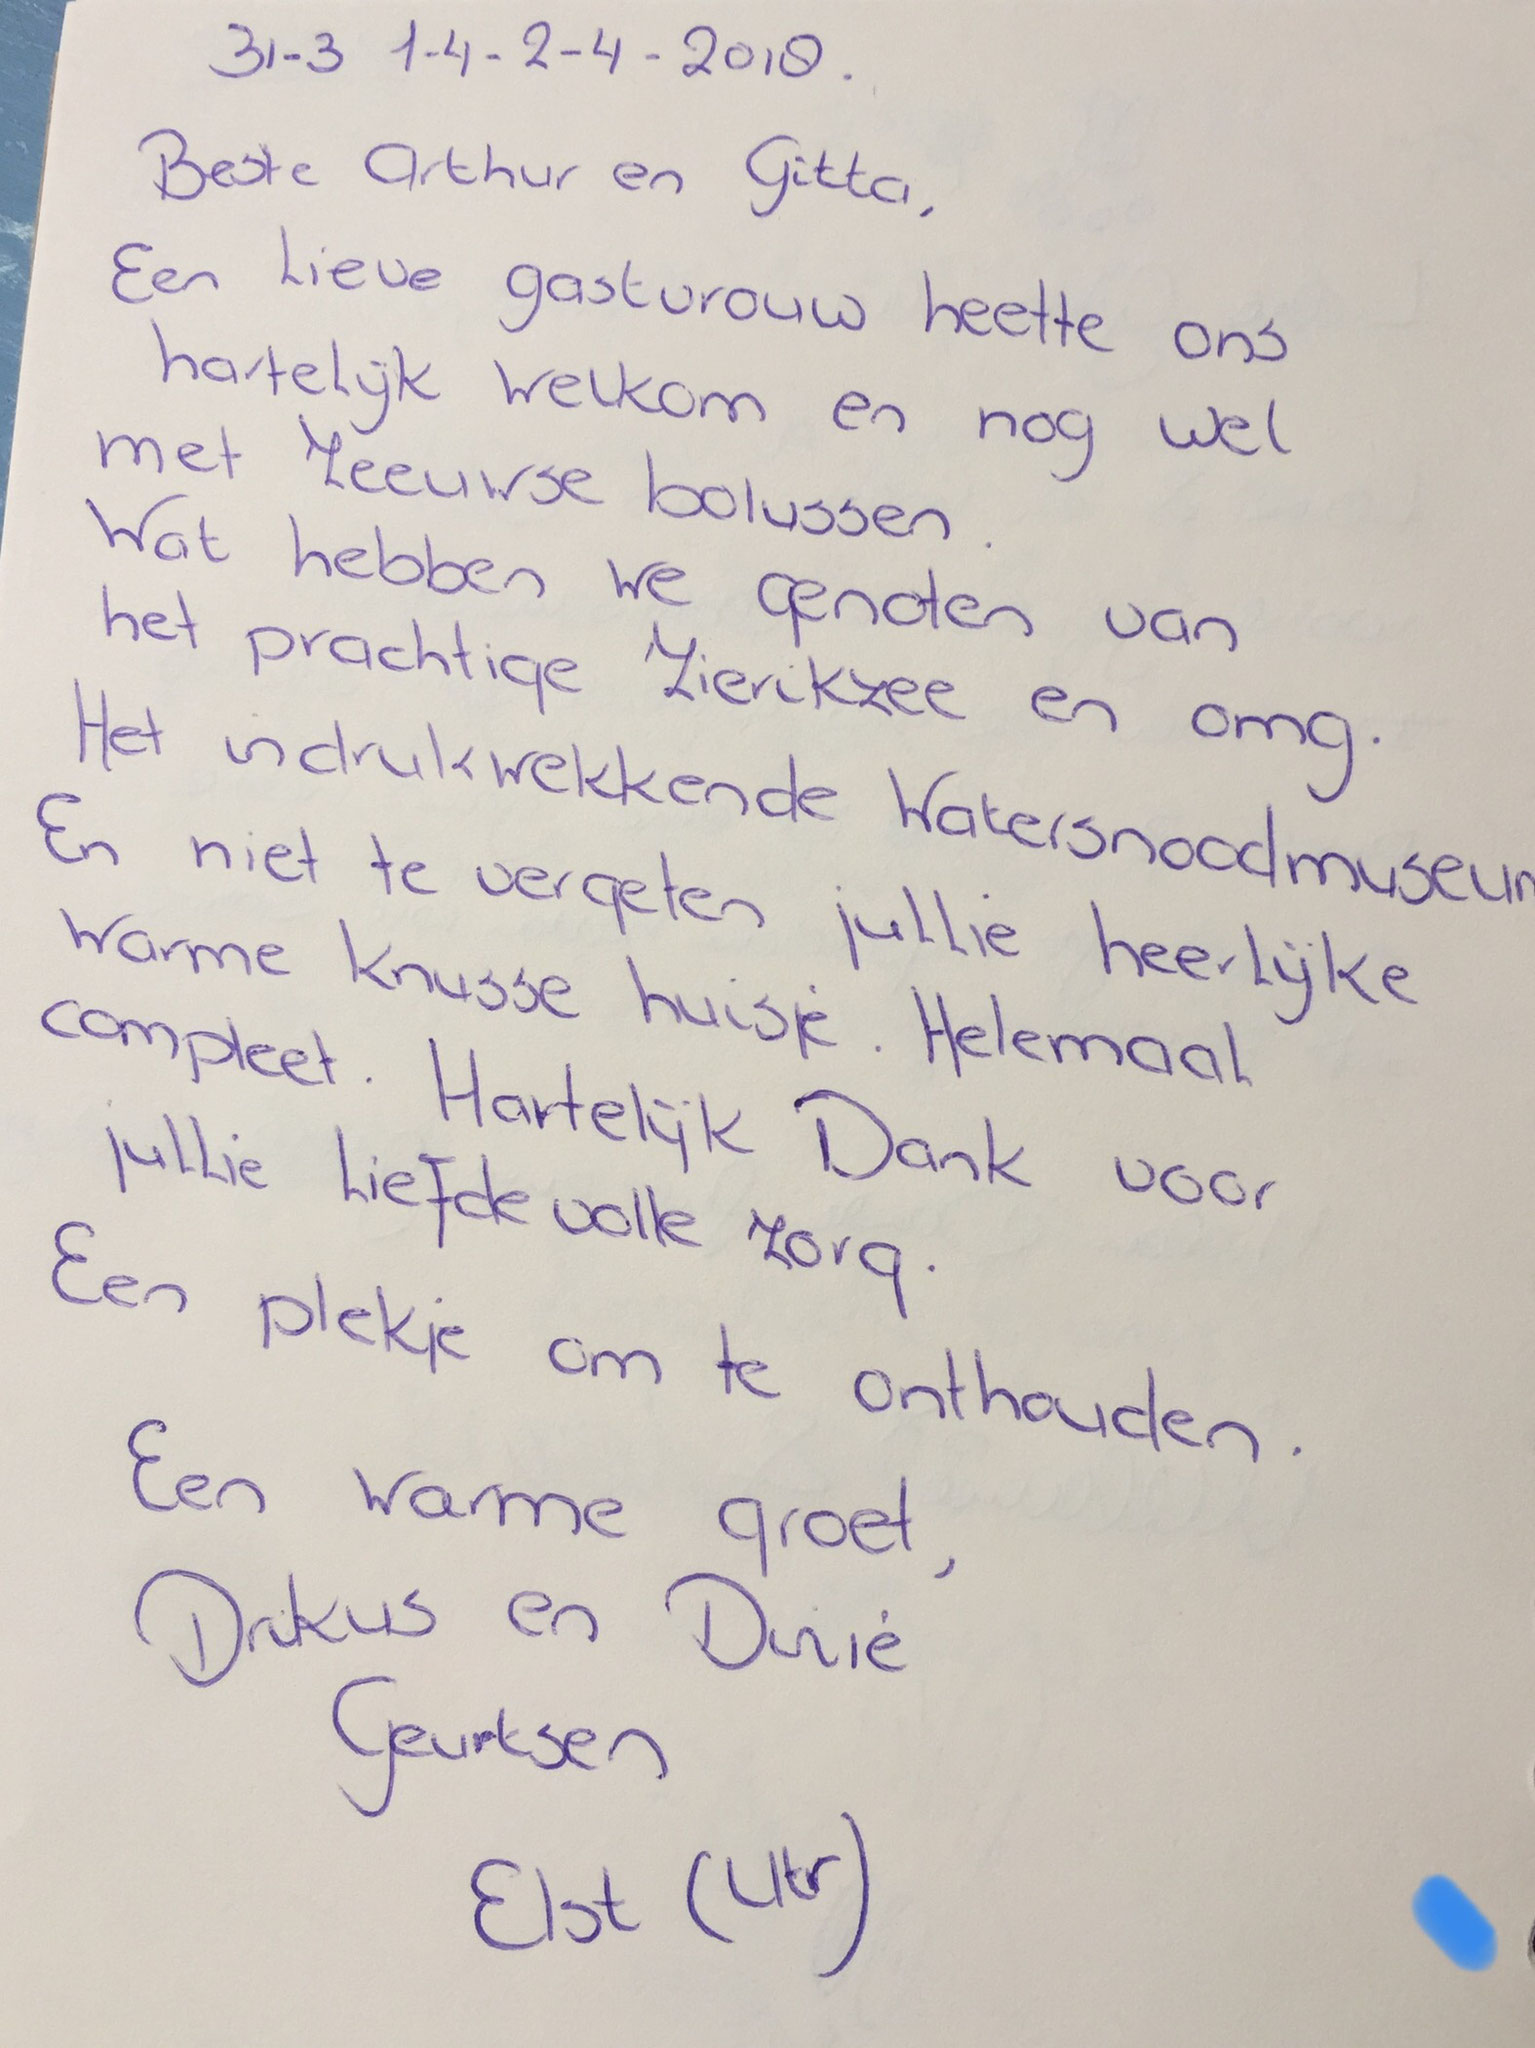 31-3 1-4-2-4-2018.
Beste Arthur en Gitta,
Een lieve gastvrouw heette ons
hartelijk welkom en nog wel
met Zeeuwse bolussen.
Wat hebben we genoten van
het prachtige Zierikzee en omg.
Het indrukwekkende Watersnoodmuseum
En niet te vergeten jullie heerlijke
warme knusse huisje. Helemaal
compleet. Hartelijk Dank voor
jullie liefdevolle zorg.
Een plekje om te onthouden.
Een warme groet,
Drikus en Dinie
Geurtsen
Elst (Utr)